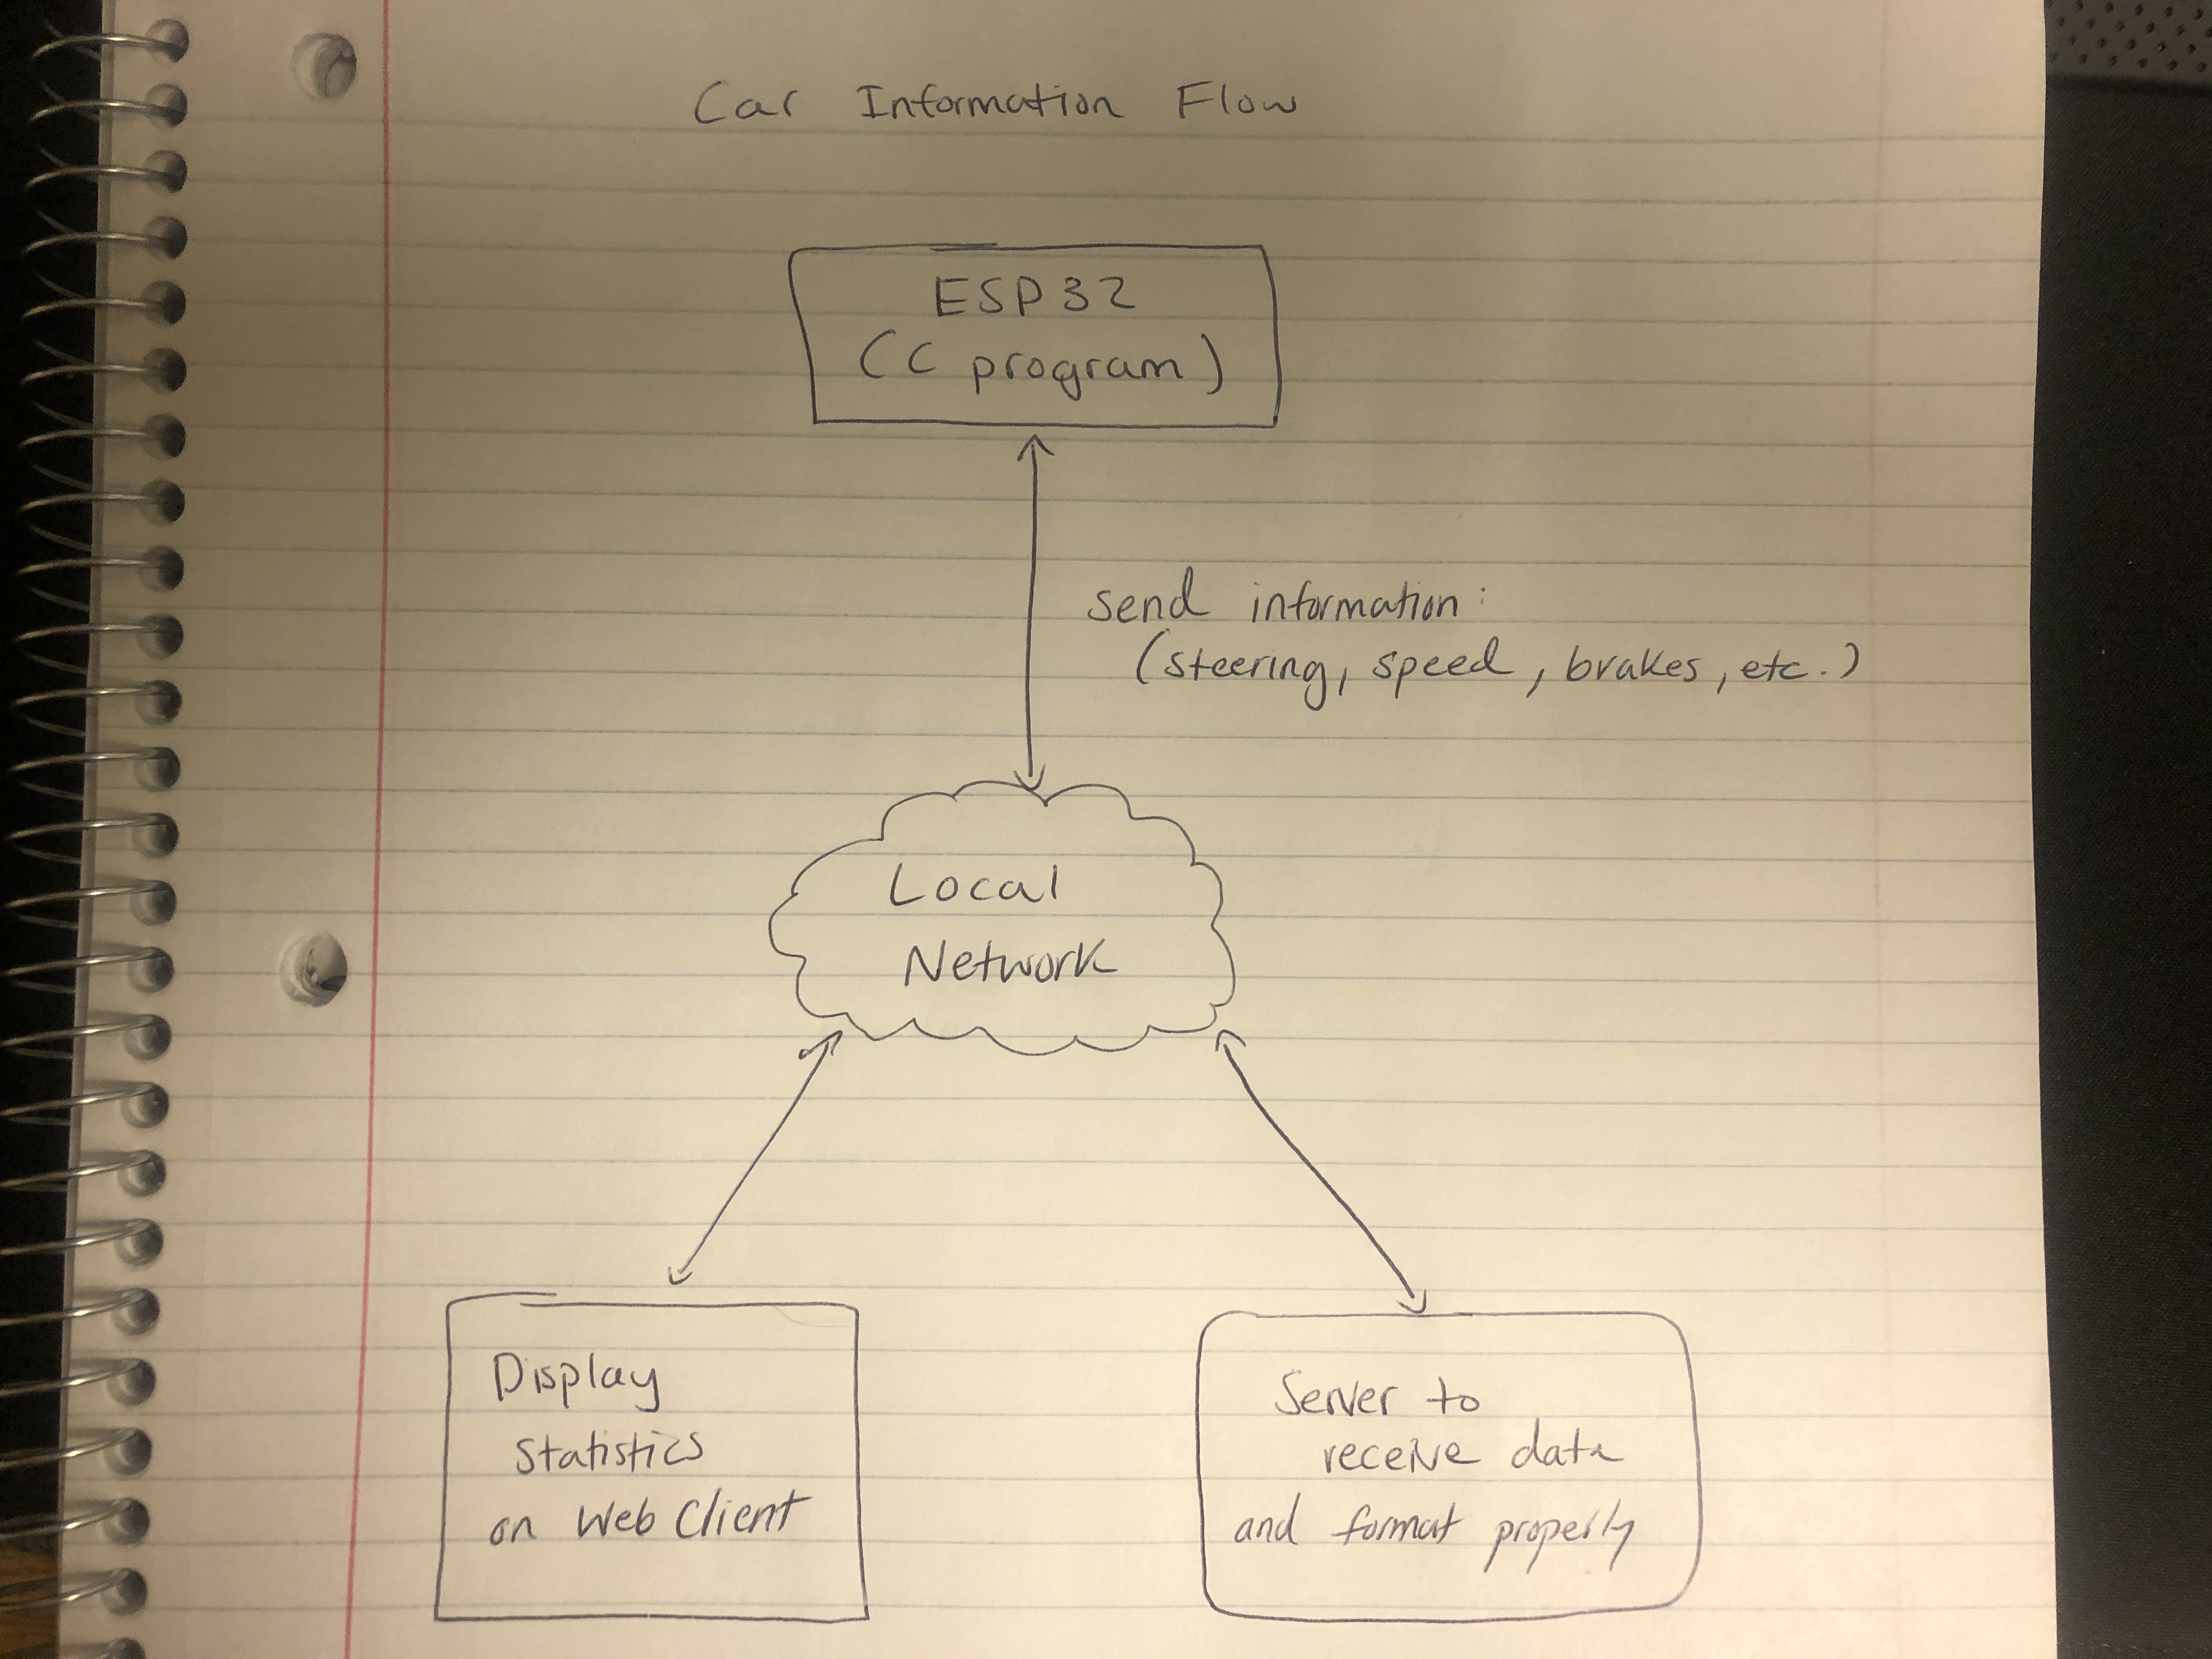 Car Information Flow
ESP32
(C program)
Send information:
(steering, speed, brakes, etc.)
Local
Network
Display
Statistics
on Web Client
Server to
receive data
and format properly